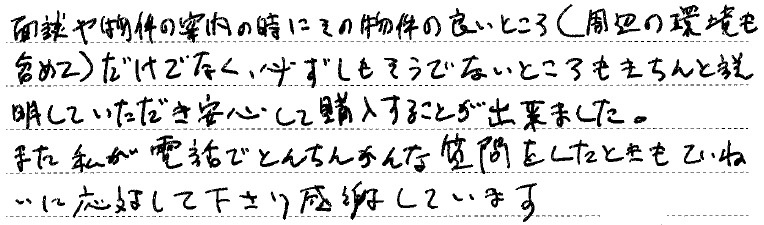 面談や物件の案内の時にその物件の良いところ(周辺の環境も
含めて)だけでなく、必ずしもそうでないところもきちんと説
明していただき安心して購入することが出来ました。
また私が電話でとんちんかんな質問をしたときもていね
いに応対して下さり感謝しています